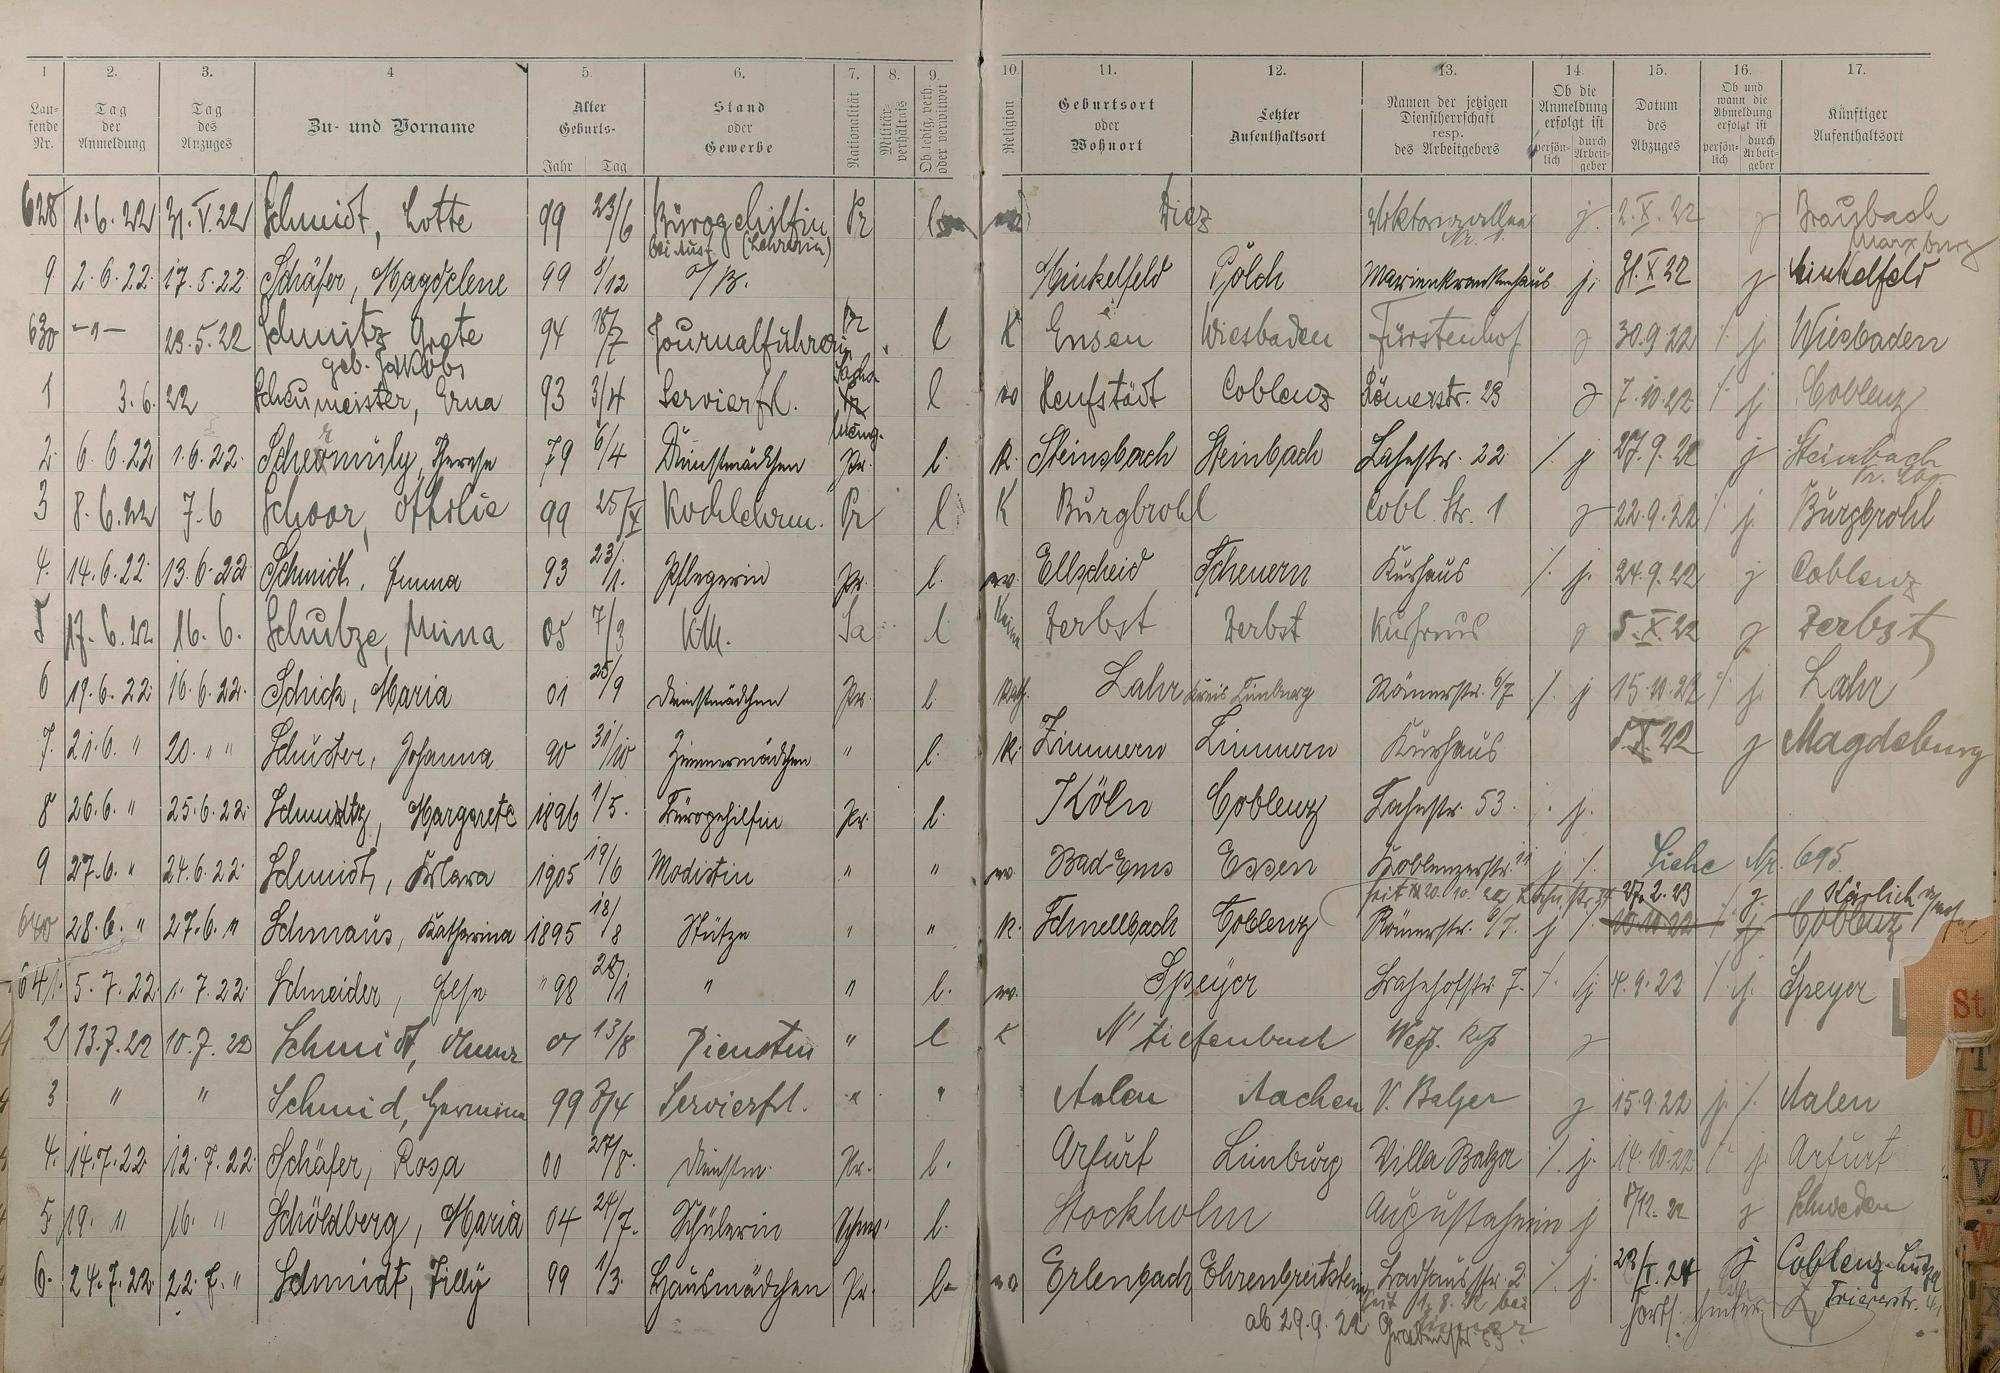 1 2. 3. 4 5. 6. 7. 8. 9. 10. 11. 12. 13. 14. 15. 16. 17.
Lau-
fende
Nr.
Tag
der
Anmeldung
Tag
des
Anzuges
Zu- und Vorname
Alter
Geburts-
Jahr Tag
Stand
oder
Gewerbe
Nationalität
Militär-
verhältnis
Ob ledig, verh.
oder verwitwet
Religion
Geburtsort
oder
Wohnort
Letzter
Aufenthaltsort
Namen der jetzigen
Dienstherrschaft
resp.
des Arbeitgebers
Ob die
Anmeldung
erfolgt ist
persön-
lich
durch
Arbeit-
geber
Datum
des
Abzuges
Ob und
wann die
Abmeldung
erfolgt ist
persön-
lich
durch
Arbeit-
geber
Künftiger
Aufenthaltsort
628 1.6.22 31.V.22 Schmidt, Lotte 99 23/6 Bürogehilfin Pr l Diez j. 2.X.22 j Braubach
(Lehrerin) Marxburg
9 2.6.22 17.5.22 Schäfer, Magdelene 99 8/12 o/B. Minkelfeld Polch Marienkrankenhaus j. 31.X 22 j Minkelfeld
630 -"- 23.5.22 Schmitz Grete 94 18/7 Journalführerin Pr l K Ensen Wiesbaden Fürstenhof j 30.9.22 /. j. Wiesbaden
geb. Jakobs
1 3.6.22 Scheumeister, Erna 93 3/4 Servierfrl. l Heufstädt Coblenz Römerstr. 23 j 7.10.22 /. j. Coblenz
2. 6.6.22 1.6.22. Schermuly, Therese 79 6/4 Dienstmädchen Pr. l. K. Steinsbach Steinbach Lahnstr. 22 /. j 27.9.22 j Steinbach
3 8.6.22 7.6 Schoor, Ottolie 99 25/X Kochlehrm. Pr l K Burgbrohl Cobl. Str. 1 j 22.9.22 /. j. Burgbrohl
4. 14.6.22. 13.6.22 Schmidt, Emma 93 23/1. Pflegerin Pr. l. ev. Ellscheid Scheuern Kurhaus /. j. 24.9.22 j Coblenz
5 17.6.22 16.6. Schubze, Mina 05 7/3 KM. Sa l Keine Zerbst Zerbst Kurhaus j 5.X.22 j Zerbst
6 19.6.22. 16.6.22. Schick, Maria 01 25/9 Dienstmädchen Pr. l. Kath. Lahr Kreis Limburg Römerstr. 6/7 /. j 15.10.22 /. j. Lahr
7. 21.6. " 20. " " Schuster, Johanna 90 31/10 Zimmermädchen " l. K. Zimmern Zimmern Kurhaus X.22 j Magdeburg
8 26.6. " 25.6.22. Schmitz, Margarete 1896 1/5. Bürogehilfin Pr. l. Köln Coblenz Lahnstr. 53. j.
9 27.6. " 24.6.22. Schmidt, Klara 1905 19/6 Modistin " " ev. Bad-Ems Essen Koblenzerstr. 11 j /. Siehe Nr. 695.
640 28.6. " 27.6. " Schmaus, Katharina 1895 18/8 Stütze " " K. Schnellbach Coblenz Römerstr. 6/7. j /. 27.2.23 10.10.22 j. Kärlich Coblenz
641. 5.7.22. 1.7.22. Schneider, Else " 98 28/1 " " l. ev. Speyer Bahnhofstr. 7. /. j 4.9.22 /. j. Speyer
2 13.7.22 10.7.22 Schmidt, 01 13/8 Dienstm " l K N' tiefenbach j
3 " " Schmid, Hermine 99 8/4 Servierfrl. " " Aalen Aachen V. Balzer j 15.9.22 j. /. Aalen
4. 14.7.22 12.7.22. Schäfer, Rosa 00 27/8. Dienstm. Pr. l. Arfurt Limburg Villa Balzer /. j. 14.10.22 /. j. Arfurt
5. 19. " 16. " Schöldberg, Maria 04 24/7. Schülerin Schw. l. Stockholm Augustaheim j /12.22 j Schweden
6. 24.7.22. 22.7. " Schmidt, Tilly 99 1/3. Hausmädchen Pr. l. Erlenbach Ehrenbreitstein 2. /. j. 23/I.24 j Coblenz-Lützel
Triererstr.
ab 29.9.22
St
T
U
V
W
X